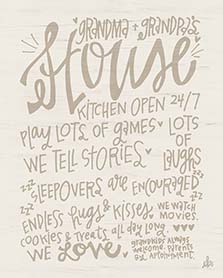 grandma + grandpa's
House
KITCHEN OPEN 24/7
PLAY LOTS OF GAMES
LOTS OF LAUGHS
WE TELL STORIES
zzz SLEEPOVERS ARE ENCOURAGED zzz
ENDLESS hugs & KISSES
WE WATCH MOVIES
COOKIES & TREATS ALL DAY LONG
WE Love
GRANDKIDS ALWAYS WELCOME. PARENTS BY APPOINTMENT.